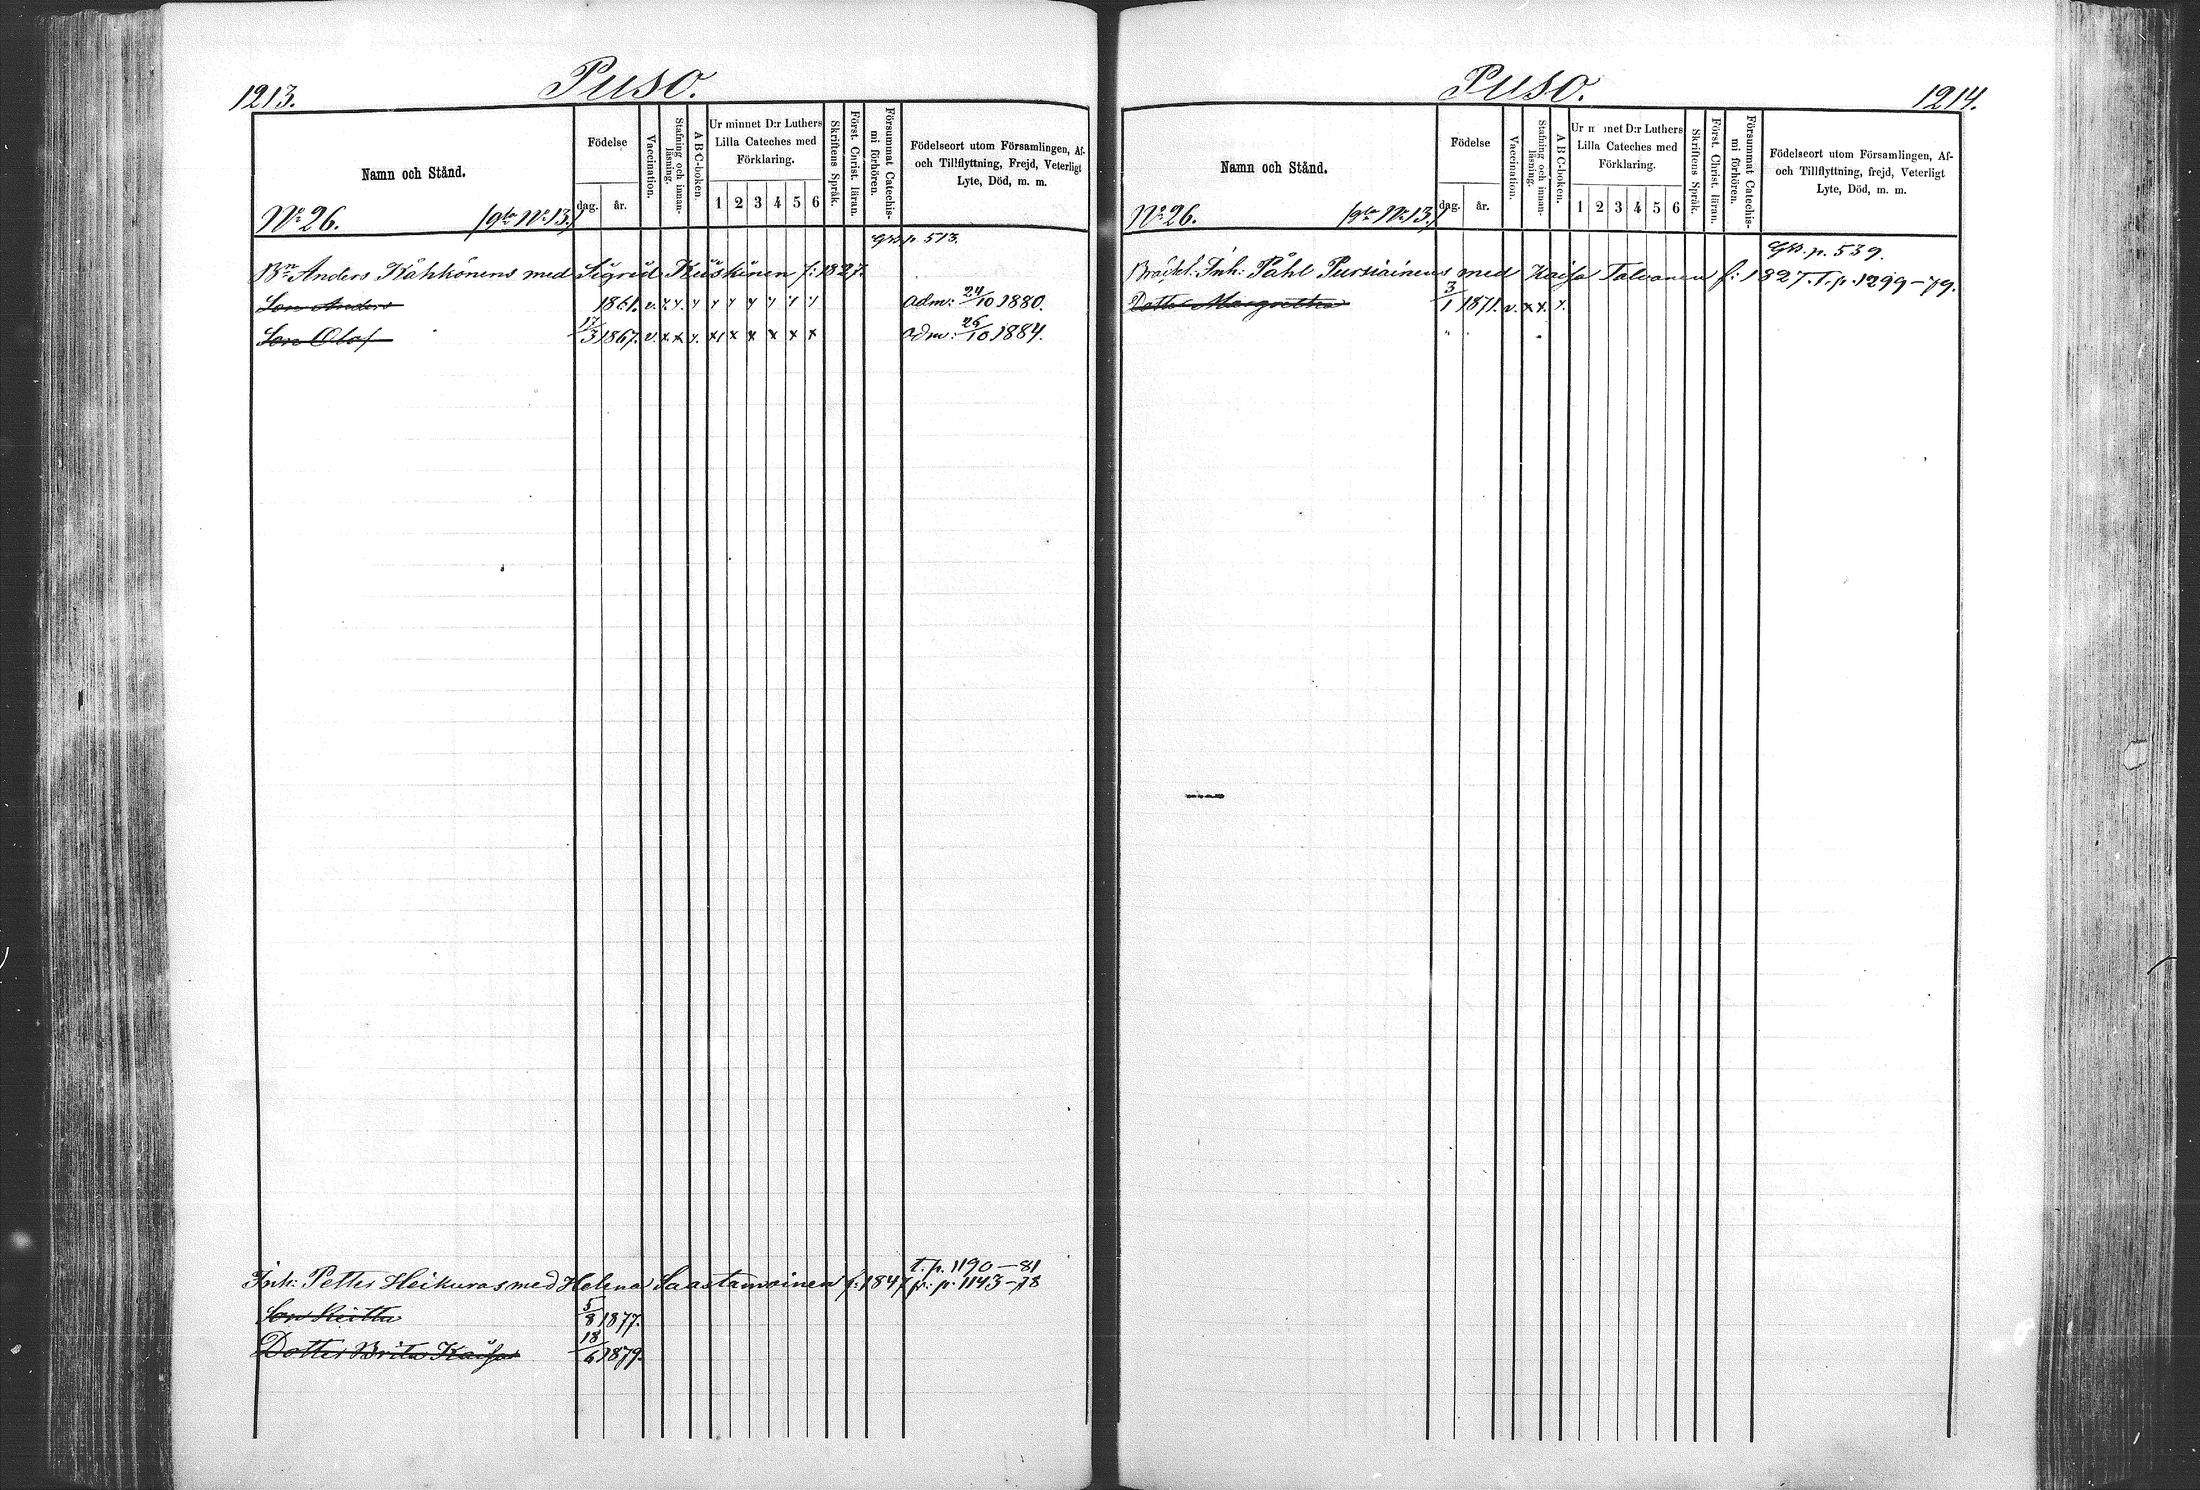 1213. Puso.
Namn och Stånd.
Födelse
dag. år.
Vaccination.
Stafning och innan-läsning.
A B C-boken.
Ur minnet D:r Luthers Lilla Cateches med Förklaring.
1 2 3 4 5 6
Skriftens Språk.
Först. Christ. läran.
Försummat Catechis-mi förhören.
Födelseort utom Församlingen, Af- och Tillflyttning, Frejd, Veterligt Lyte, Död, m. m.
No 26. No 13.
p. 513.
Bn Anders Kähkönens med Sigrid f: 1827.
Son Anders 1861. v. x x x x x x x x x Adm: 24/10 1880.
Son Olof 17/3 1867. v. x x x x x x x x x adm: 26/10 1884.
t. p. 1190–81
Inh: Petter Heikuras med Helena Saastamoinen f: 1847 fr: p. 1143–78
Son 5/8 1877.
Dotter Brita Kaisa 18/6 1879.
Puso. 1214.
Namn och Stånd.
Födelse
dag. år.
Vaccination.
Stafning och innan-läsning.
A B C-boken.
Ur minnet D:r Luthers Lilla Cateches med Förklaring.
1 2 3 4 5 6
Skriftens Språk.
Först. Christ. läran.
Försummat Catechis-mi förhören.
Födelseort utom Församlingen, Af- och Tillflyttning, frejd, Veterligt Lyte, Död, m. m.
No 26. No 13.
p. 539.
Inh: Påhl Pursiainens med Kaisa Talvanen f: 1827. t. p. 1299–79.
Dotter Margretha 3/1 1871. v. x x x.